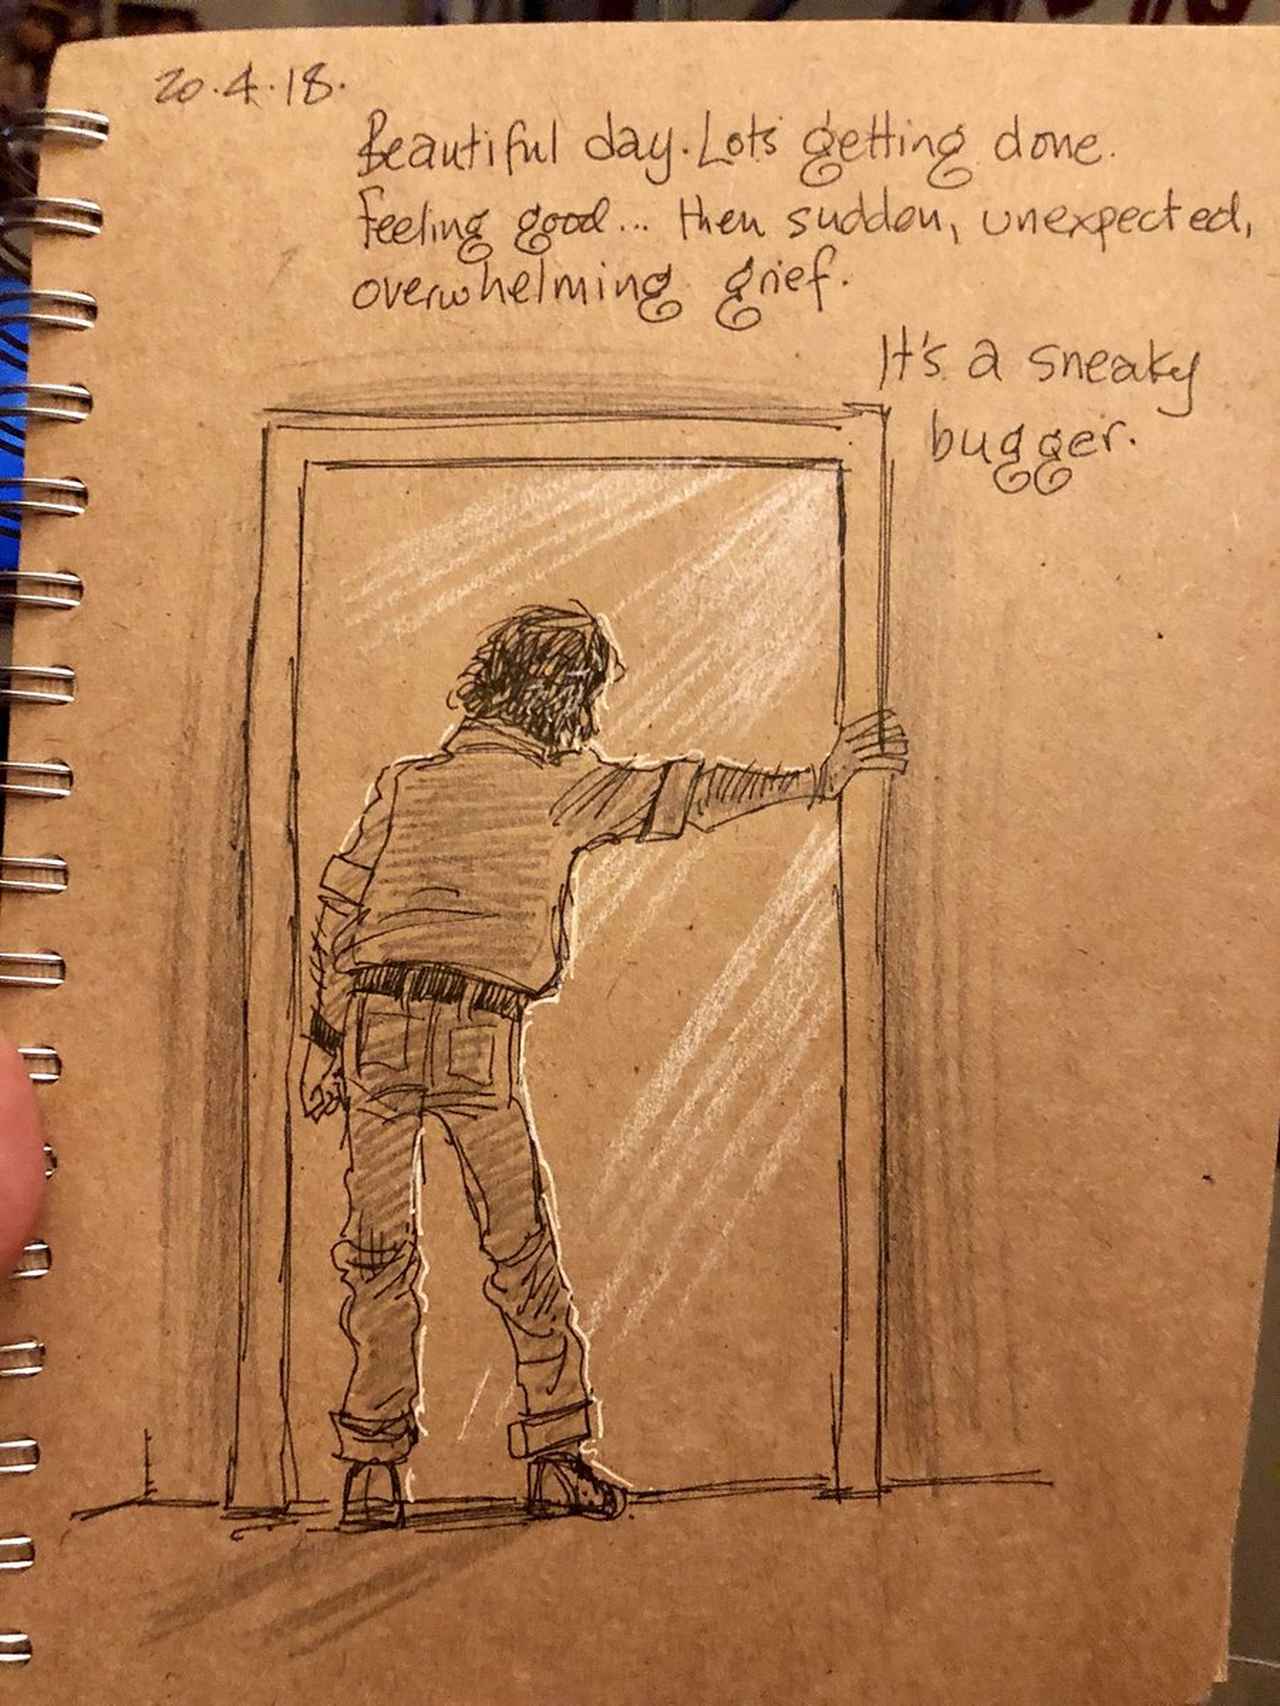 20.4.18.
Beautiful day. Lots getting done.
Feeling good... then sudden, unexpected,
overwhelming grief.
It's a sneaky
bugger.